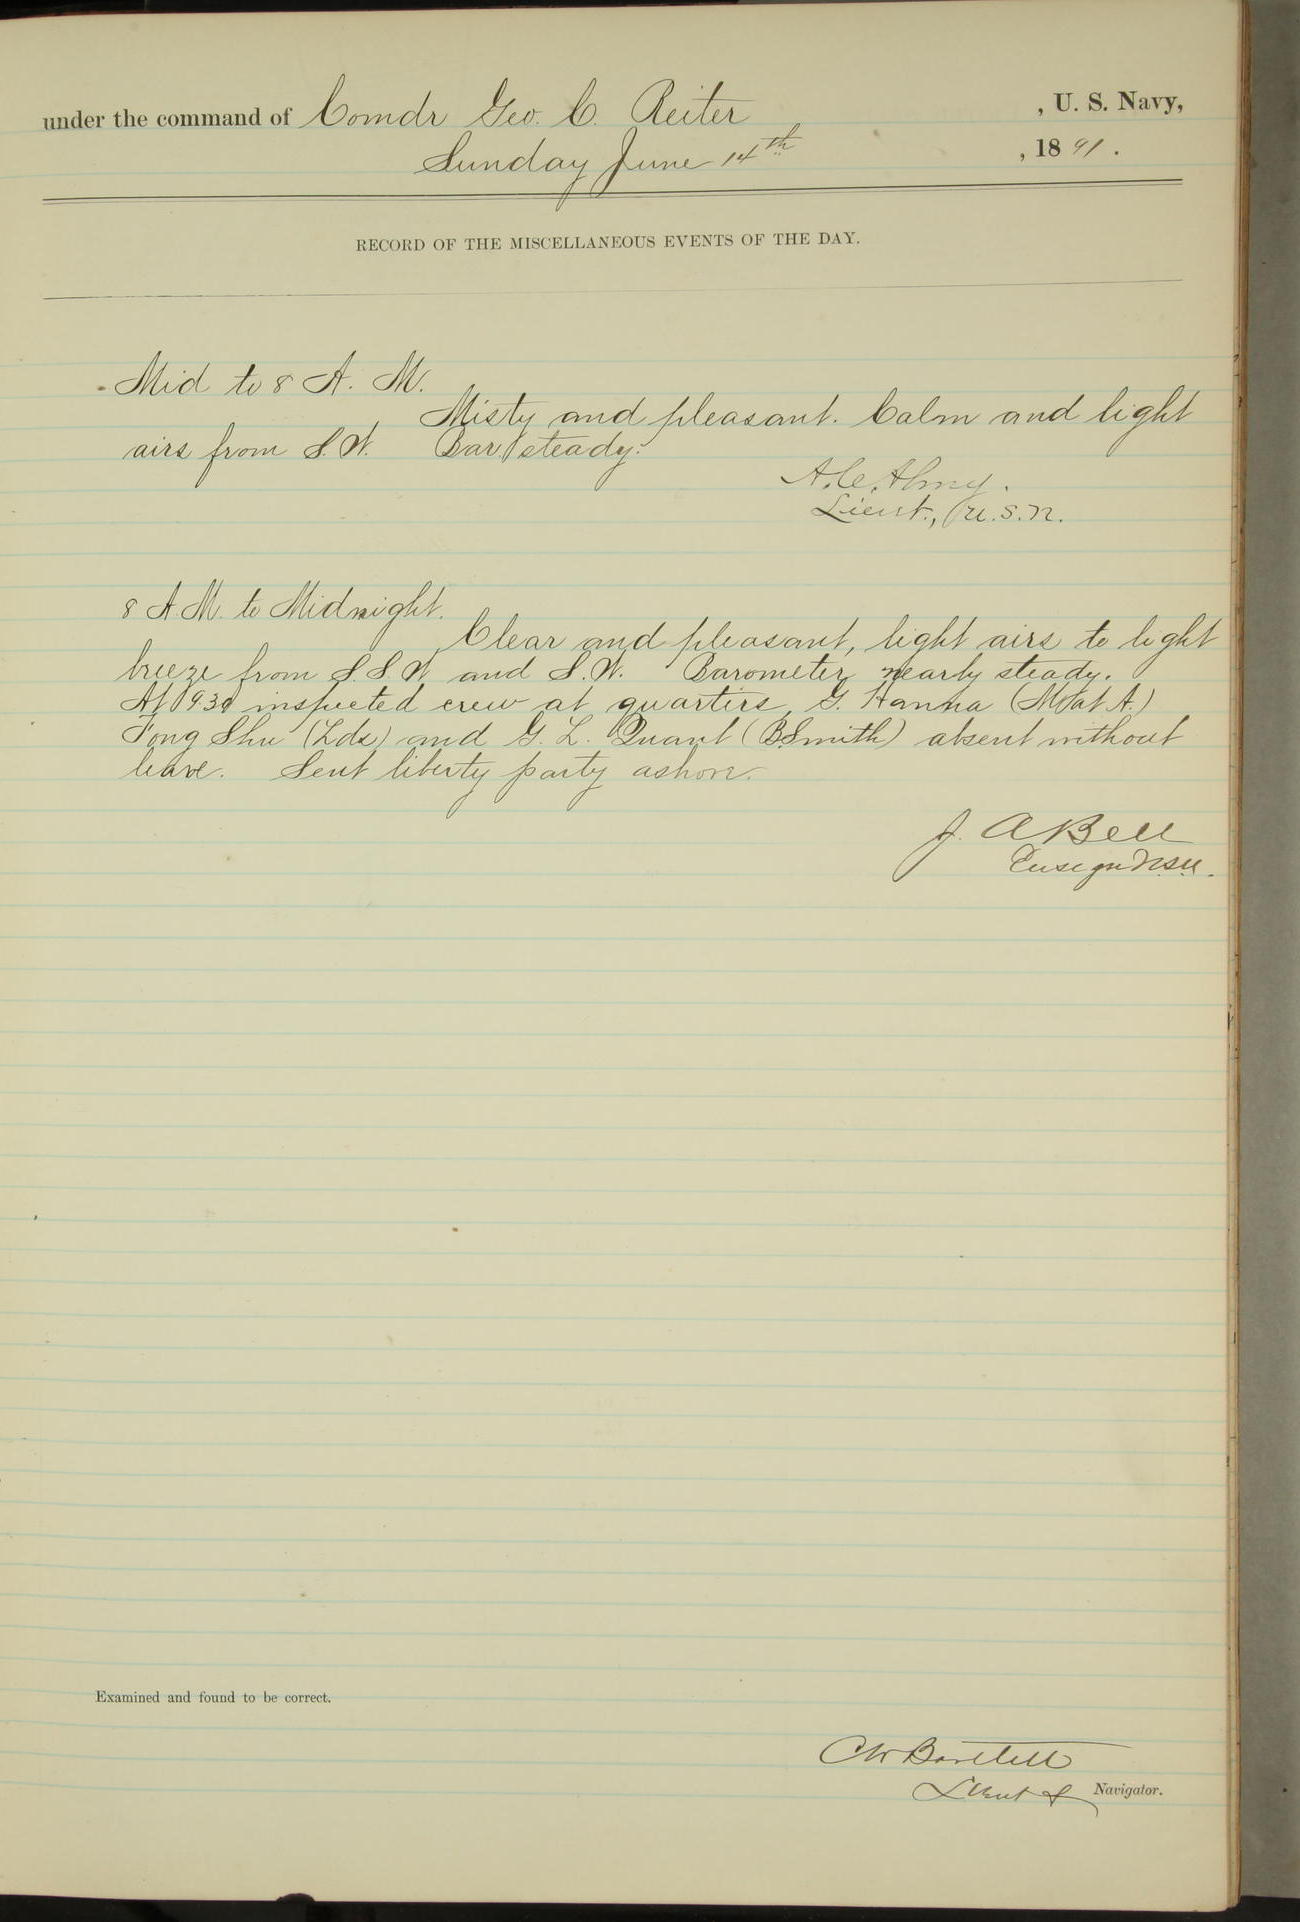 under the command of Comdr Geo. C. Reiter , U. S. Navy,
Sunday June 14th , 1891.
RECORD OF THE MISCELLANEOUS EVENTS OF THE DAY.
Mid to 8 A. M.
Misty and pleasant. Calm and light
airs from S.W. Bar steady.
A.C. Almy.
Lieut., U.S.N.
8 A.M. to Midnight.
Clear and pleasant, light airs to light
breeze from S.S.W. and S.W. Barometer nearly steady.
At 9.30 inspected crew at quarters, G. Hanna (M at A.)
Tong Shu (Lds) and G. L. Quant (B.Smith) absent without
leave. Sent liberty party ashore.
J. A Bell
Ensign U.S.N.
Examined and found to be correct.
C W Bartlett
Lieut & Navigator.